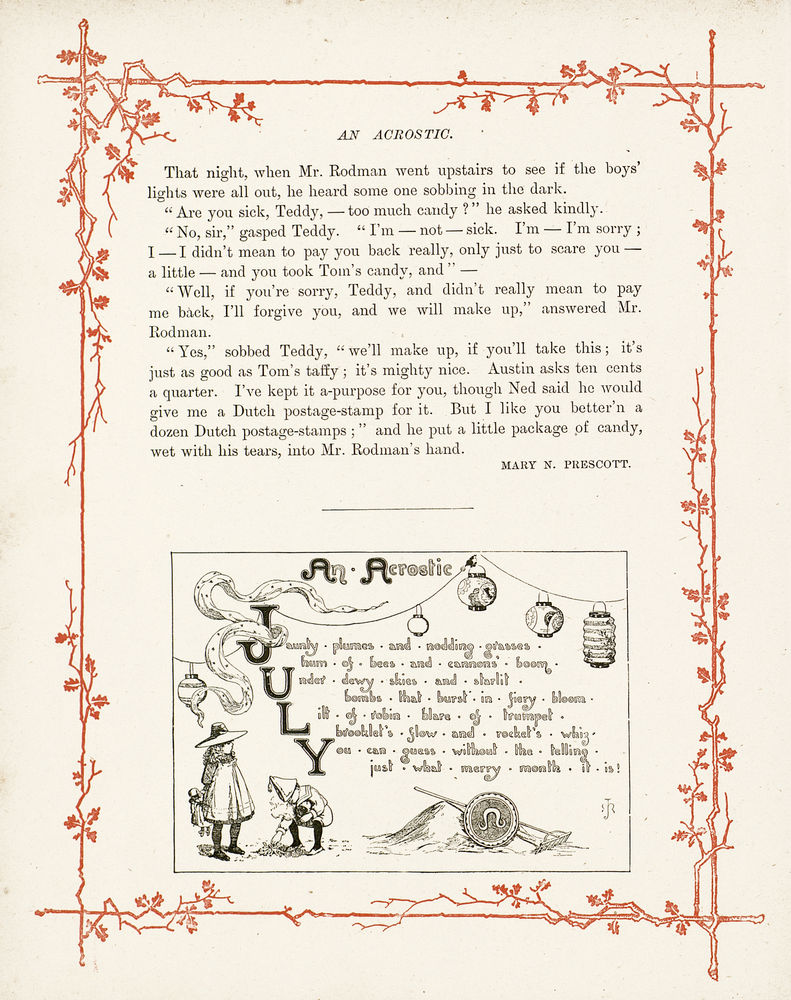 AN ACROSTIC.
That night, when Mr. Rodman went upstairs to see if the boys'
lights were all out, he heard some one sobbing in the dark.
“Are you sick, Teddy, — too much candy?” he asked kindly.
“No, sir,” gasped Teddy. “I'm — not — sick. I'm — I'm sorry;
I — I didn't mean to pay you back really, only just to scare you —
a little — and you took Tom's candy, and” —
“Well, if you're sorry, Teddy, and didn't really mean to pay
me back, I'll forgive you, and we will make up,” answered Mr.
Rodman.
“Yes,” sobbed Teddy, “we'll make up, if you'll take this; it's
just as good as Tom's taffy; it's mighty nice. Austin asks ten cents
a quarter. I've kept it a-purpose for you, though Ned said he would
give me a Dutch postage-stamp for it. But I like you better'n a
dozen Dutch postage-stamps;” and he put a little package of candy,
wet with his tears, into Mr. Rodman's hand.
MARY N. PRESCOTT.
An · Acrostic
Jaunty · plumes · and · nodding · grasses ·
hum · of · bees · and · cannons' · boom ·
Under · dewy · skies · and · starlit ·
bombs · that · burst · in · fiery · bloom ·
Lilt · of · robin · blare · of · trumpet ·
brooklet's · flow · and · rocket's · whiz ·
You · can · guess · without · the · telling ·
just · what · merry · month · it · is!
JR